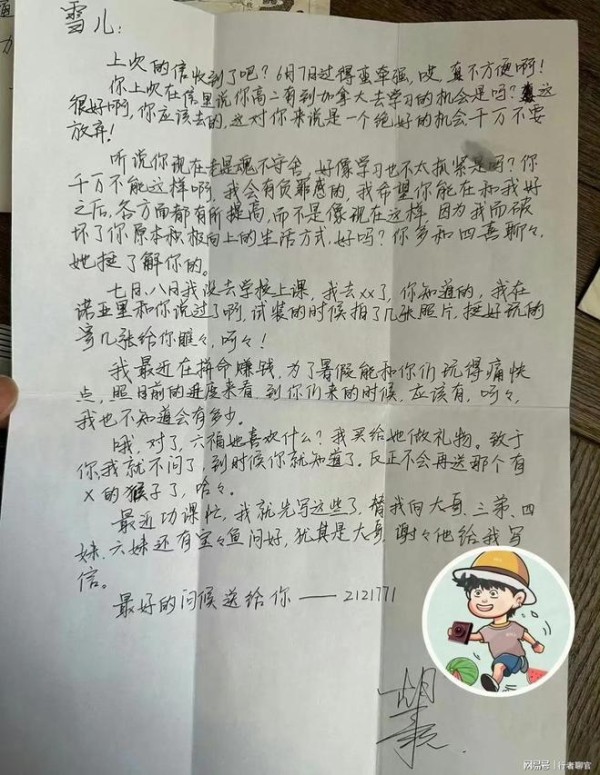 雪儿：
上次的信收到了吧？6月7日过得蛮牵强，哎，真不方便啊！
你上次在信里说你高二有到加拿大去学习的机会是吗？这
很好啊，你应该去的，这对你来说是一个绝好的机会，千万不要
放弃！
听说你现在老是魂不守舍，好像学习也不太抓紧是吗？你
千万不能这样啊，我会有负罪感的，我希望你能在和我好
之后，各方面都有所提高，而不是像现在这样，因为我而破
坏了你原本积极向上的生活方式，好吗？你多和四喜聊々，
她挺了解你的。
七日、八日我没去学校上课，我去xx了，你知道的，我在
诺亚里和你说过了啊，试装的时候拍了几张照片，挺好玩的
寄几张给你瞧々，呵々！
我最近在拼命赚钱，为了暑假能和你们玩得痛快
点，照目前的进度来看，到你们来的时候，应该有，呵々，
我也不知道会有多少。
哦，对了，六福她喜欢什么？我买给她做礼物。致于
你，我就不问了，到时候你就知道了。反正不会再送那个有
X的猴子了，哈々。
最近功课忙，我就先写这些了，替我向大哥、三弟、四
妹、六妹还有宝々鱼问好，犹其是大哥，谢々他给我写
信。
最好的问候送给你——2121771
胡
搜狐号|行者聊官